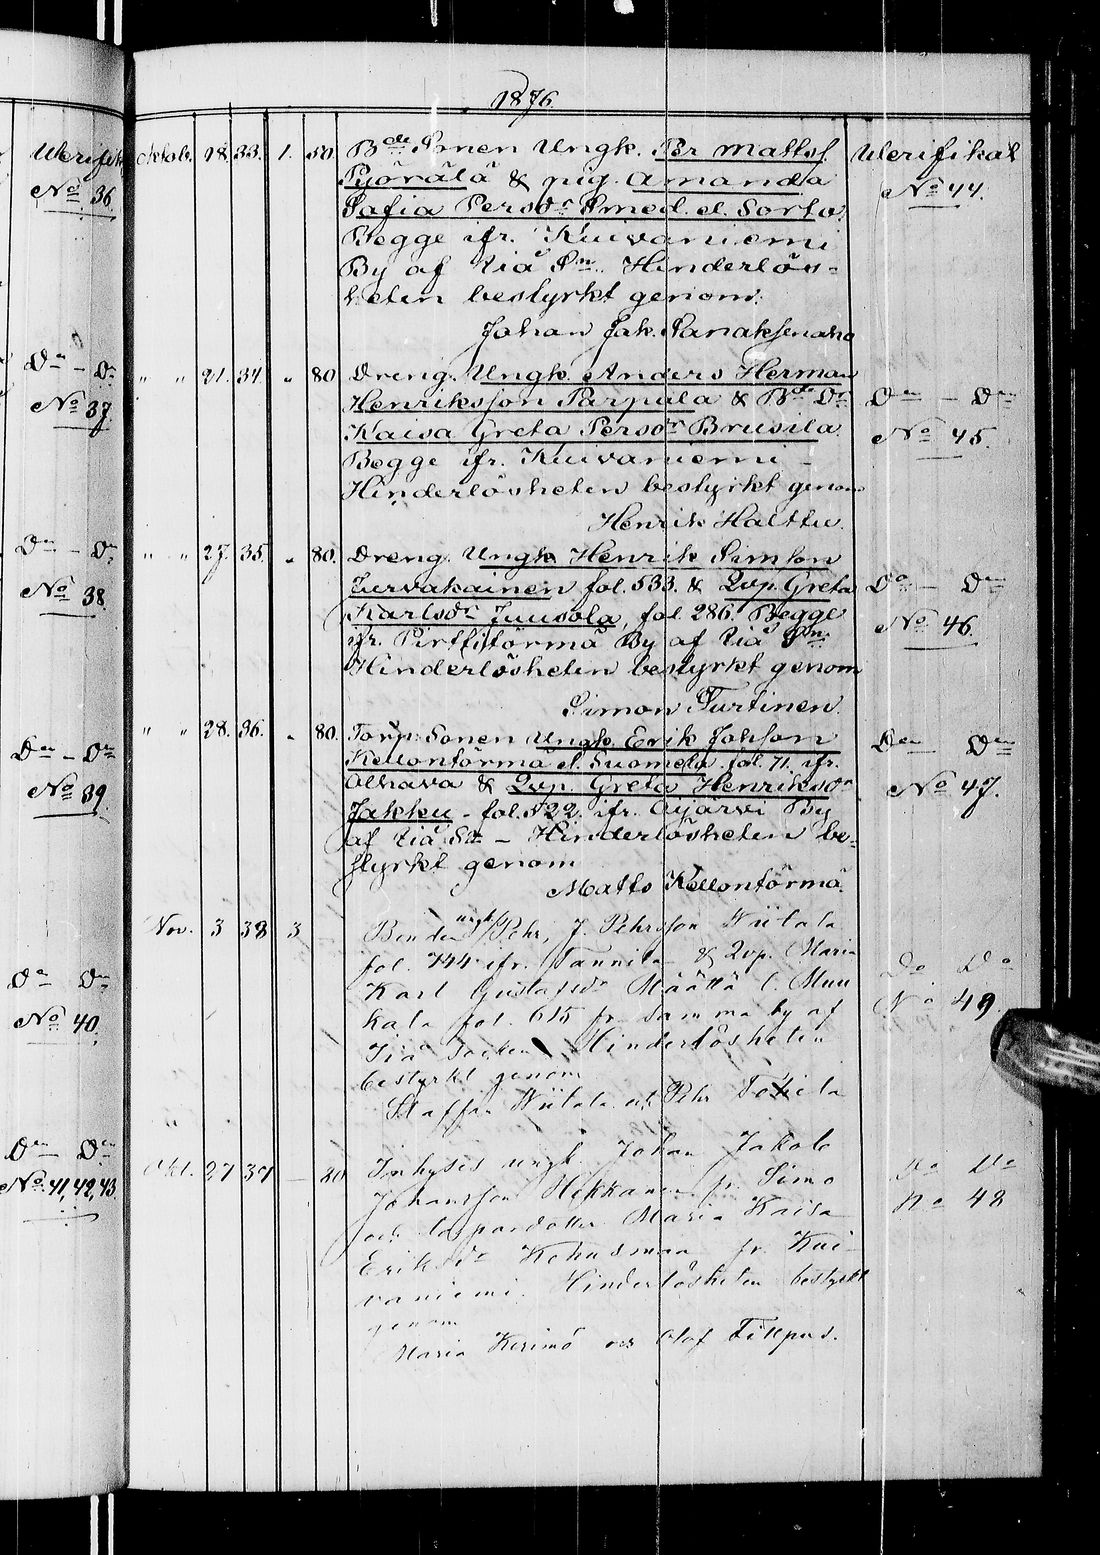 1876.
Verifik
No 36.
Do – Do
No 37.
Do – Do
No 38.
Do – Do
No 39.
Do Do
No 40.
Do Do
No 41, 42, 43.
Oktob. 18. 33. 1. 50. Bde Sonen Ungk. Per Mattsf.
Pyörälä & pig. Amanda
Sofia Persdr Smed. el. Sorto.
Begge ifr. Kuivaniemi
By af Iiå Sn. Hinderlös-
heten bestyrkt genom:
Johan Jak.
Verifikat
No 44.
" " 21. 34. " 80 Dreng. Ungk. Anders Herman
Henriksson Parpala & Bde Dr
Kaisa Greta Persdr Brusila.
Begge ifr. Kuivaniemi –
Hinderlösheten bestyrkt genom
Henrik Halttu.
Do – Do
No 45.
" " 27. 35. " 80. Dreng. Ungk Henrik Simsson
Jurvakainen fol. 533. & Qvp. Greta
Karlsdr Juusola, fol 286. Begge
ifr. Pirttitörmä By af Iiå Sn.
Hinderlösheten bestyrkt genom
Simon Turtinen.
Do – Do
No 46.
" " 28. 36. " 80. Torp. Sonen Ungk. Erik Johsson
Kellontörmä el. Suomela. fol. 71. ifr.
Olhava & Qvp. Greta Henriksdr
Jakku – fol. 522. ifr. Ojärvi By
af Iiå Sn – Hinderlösheten be-
styrkt genom
Matts Kellontörmä.
Do Do
No 47.
Nov. 3 38 3 Bonden ungk Pehr, J. Pehrsson Wiitala
fol. 744 ifr. Tannila & Qvp. Maria
Karl Gustafsdr Määttä l. Muu
kala fol. 615 fr samma by af
Iiå Socken Hinderlösheten
bestyrkt genom
Staffan Wiitala och Pehr
Do Do
No 49.
Okt. 27 37 – 80 Inhyses ungk. Johan Jakob
Johansson Hekkanen fr. Simo
och Maria Kaisa
Eriksdr fr. Kui-
vaniemi. Hinderlösheten bestyrkt
genom
Maria och Olof
Do Do
No 48